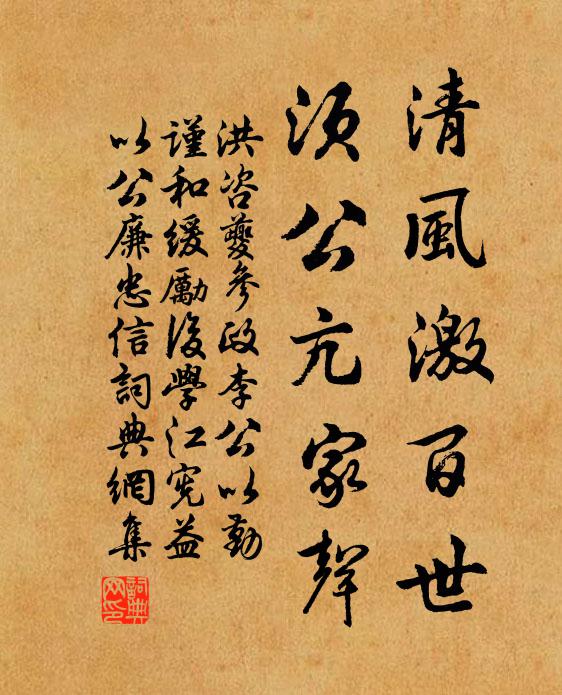 清風激百世
須公亢家聲
洪咨夔參政李公以勤
謹和緩勵後學江宪益
以公廉忠信詞典網集
詞典網印